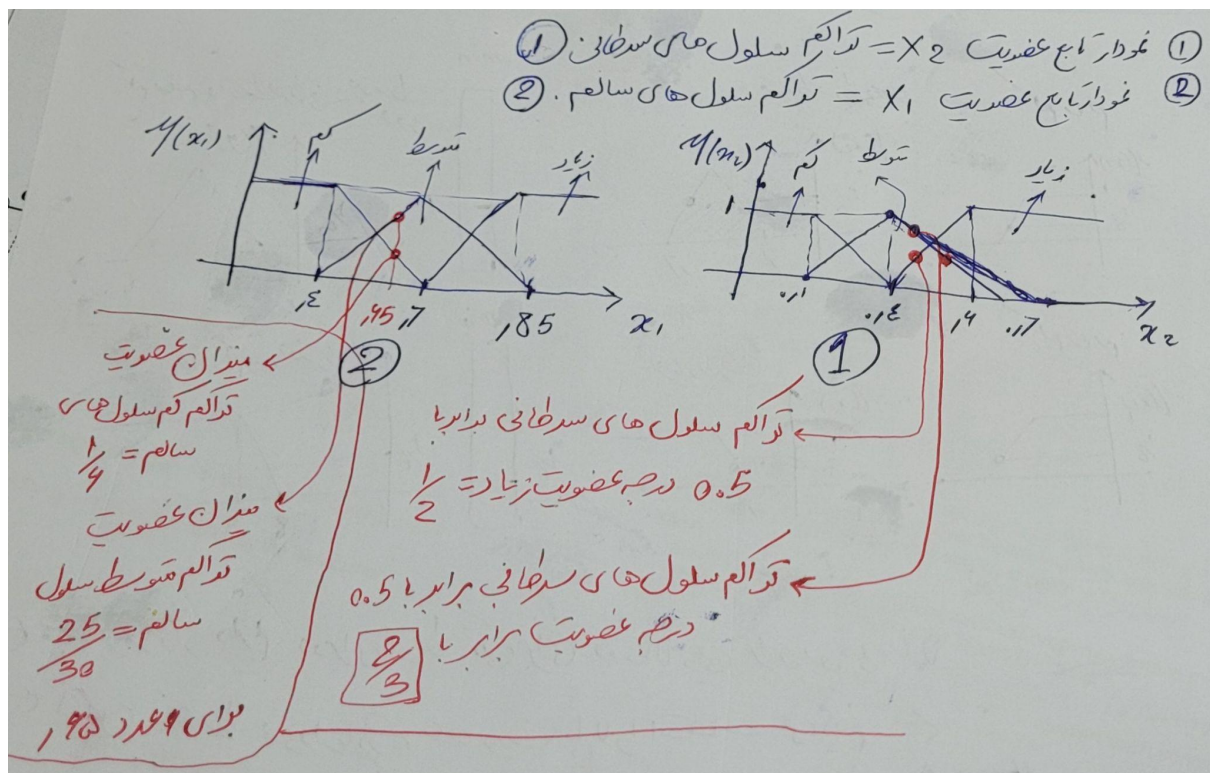 ① نمودار تابع عضویت X2 = تراکم سلول های سرطانی ①
② نمودار تابع عضویت X1 = تراکم سلول های سالم . ②
μ(x1)
کم
متوسط
زیاد
μ(x2)
کم
متوسط
زیاد
1
,٤
,45
,7
,85
x1
0,1
0,٤
,4
0,7
x2
②
①
میزان عضویت
تراکم کم سلول های
سالم = 1/4
میزان عضویت
تراکم متوسط سلول
سالم = 25/30
برای عدد ,۶۵
تراکم سلول های سرطانی برابر با
0.5 درجه عضویت زیاد = 1/2
تراکم سلول های سرطانی برابر با 0.5
درجه عضویت برابر با 2/3